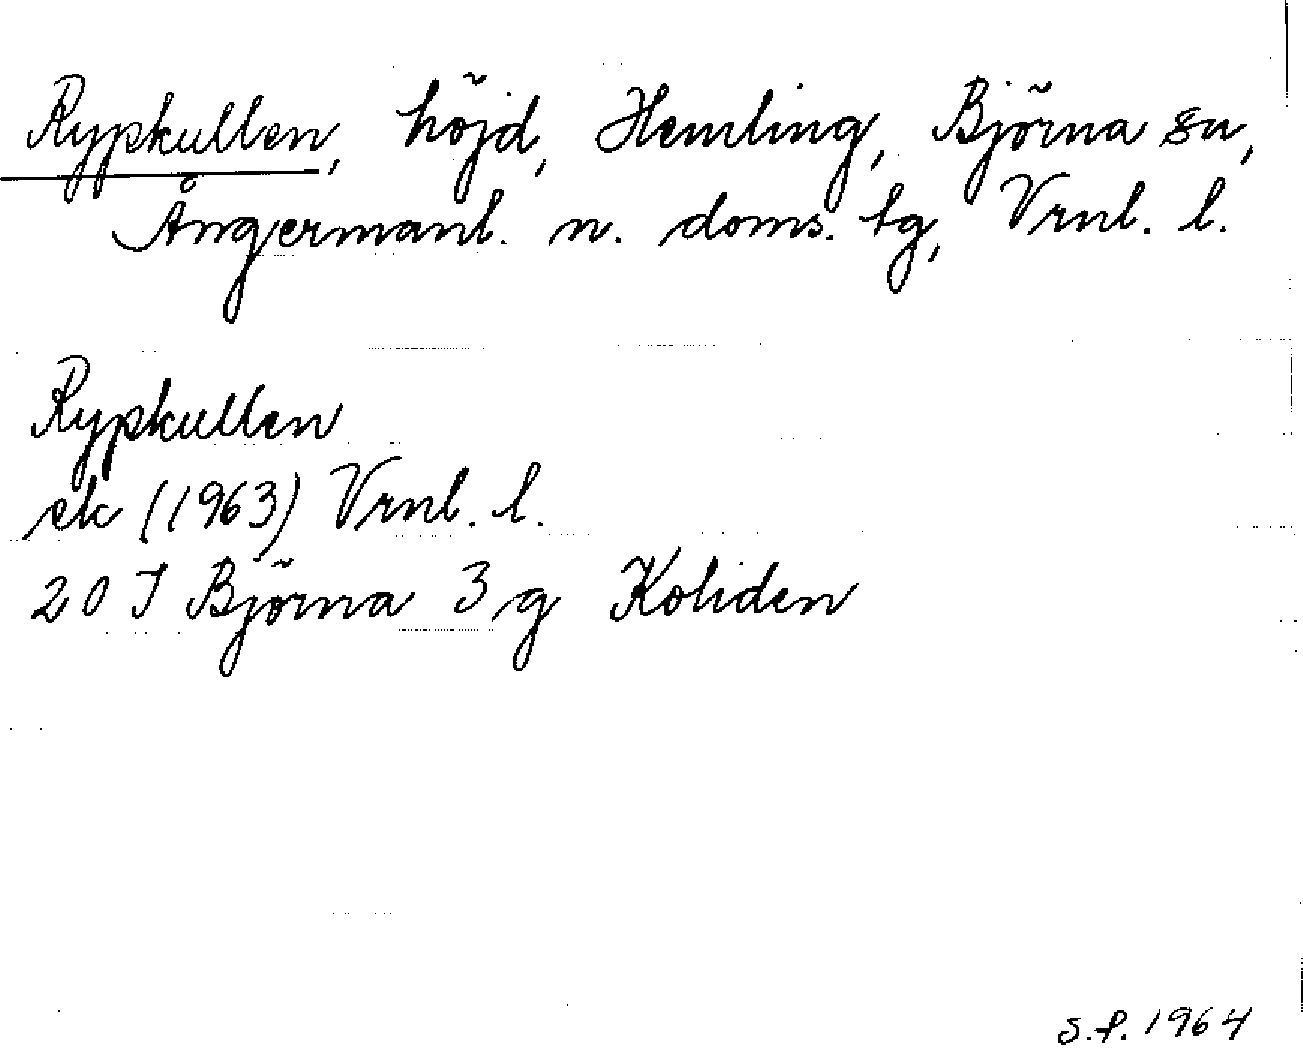 Rypkullen, höjd, Hemling, Björna sn,
Ångermanl. n. doms. tg, Vrnl. l.
Rypkullen
ek (1963) Vrnl. l.
20 J Björna 3 g Koliden
S.f. 1964